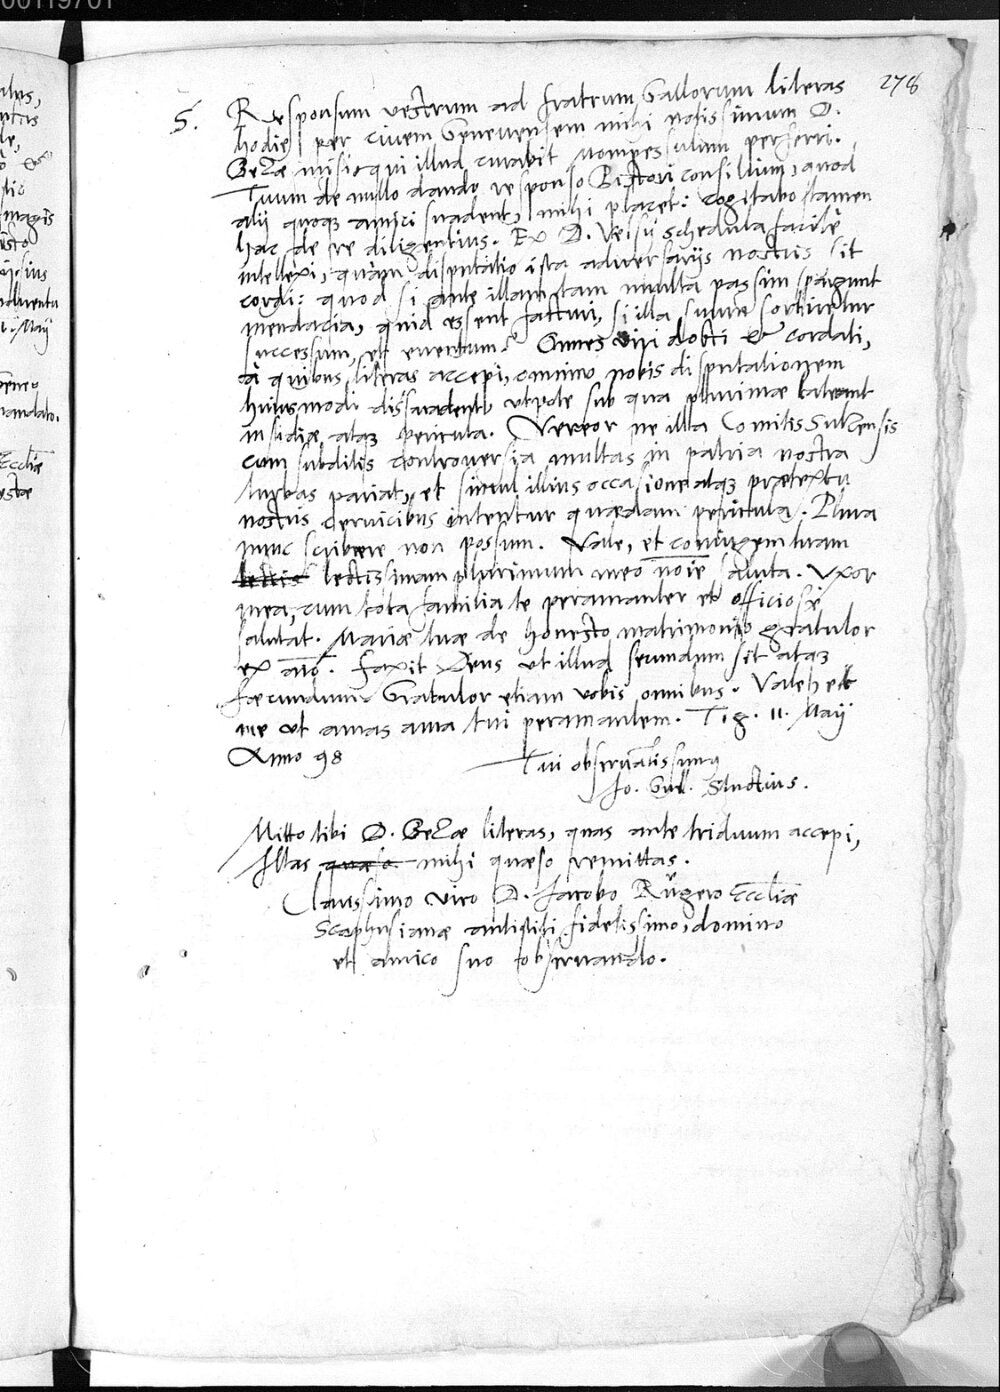 00119701
278
S. Responsum vestrum ad fratrum Gallorum literas
hodie per civem Genevensem mihi notissimum D.
Bezæ misi: qui illud curabit Mompessulum perferri.
Tuum de nullo dando responso Pistori consilium, quod
alij quoque amici suadent, mihi placet: cogitabo tamen
hac de re diligentius. Ex D. schedula facilè
intellexi, quàm disputatio ista adversarijs nostris sit
cordi: quod si ante illam tam multa passim spargunt
mendacia, quid essent facturi, si illa suum sortiretur
successum, et eventum? Omnes viri docti & cordati,
à quibus literas accepi, omnino nobis disputationem
huiusmodi dissuadent, utpote sub qua plurimæ lateant
insidiæ atque pericula. Vereor ne illa Comitis Sulzensis
cum subditis controversia multas in patria nostra
turbas pariat, et simul illius occasione atque prætextu
nostris cervicibus intentur quædam pericula. Plura
nunc scribere non possum. Vale, et coniugem tuam
lectissimam plurimum meo noie saluta. Uxor
mea, cum tota familia te peramanter et officiosè
salutat. Mariæ tuæ de honesto matrimonio gratulor
ex aīo. Faxit Deus ut illud secundum sit atque
fæcundum. Gratulor etiam vobis omnibus. Vale et
me ut amas ama tui peramantem. Tig. 11. Maij
Anno 98
Tui observantissimus
Jo. Guil. Stuckius.
Mitto tibi D. Bezæ literas, quas ante triduum accepi,
Illas quæso mihi quæso remittas.
Clarissimo viro D. Jacobo Rügero Eccliæ
Scaphusianæ antistiti fidelissimo, domino
et amico suo observando.